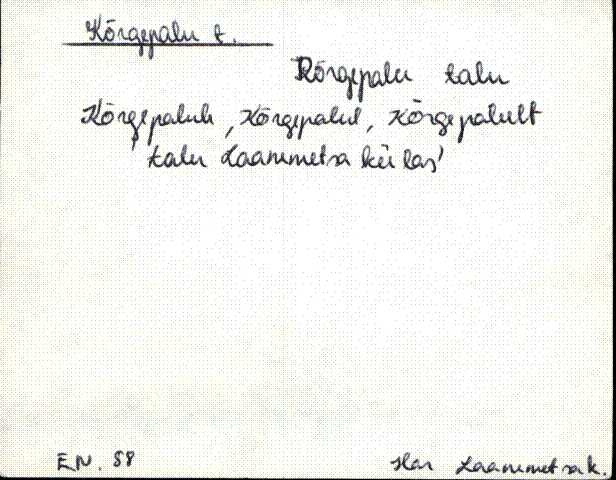 Kõrgepalu t.
Kõrgepalu talu
Kõrgepaluh, Kõrgepalul, Kõrgepalult
'talu Laanemetsa külas'
EN. 88
Har Laanemetsa k.